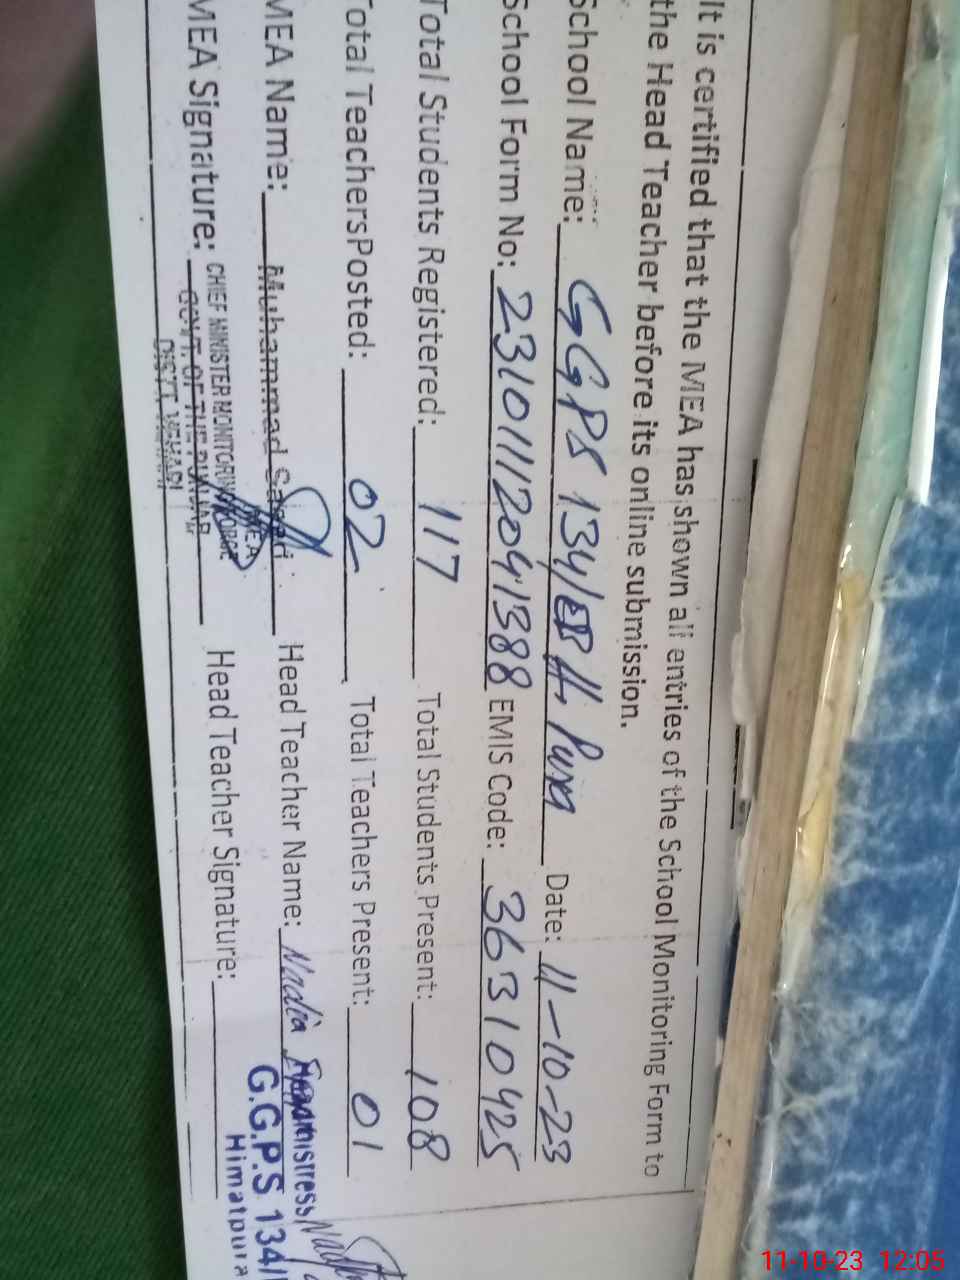 It is certified that the MEA has shown all entries of the School Monitoring Form to
the Head Teacher before its online submission.
School Name: GGPS 134/EB H. Pura Date: 11-10-23
School Form No: 23101112041388 EMIS Code: 36310425
Total Students Registered: 117 Total Students Present: 108
Total TeachersPosted: 02 Total Teachers Present: 01
MEA Name: Muhammad Head Teacher Name: Nadia
MEA Signature: Head Teacher Signature:
MEA
CHIEF MINISTER MONITORING FORCE
GOVT. OF THE PUNJAB
DISTT. VEHARI
Headmistress
G.G.P.S 134/
Himatpura
11-10-23 12:05